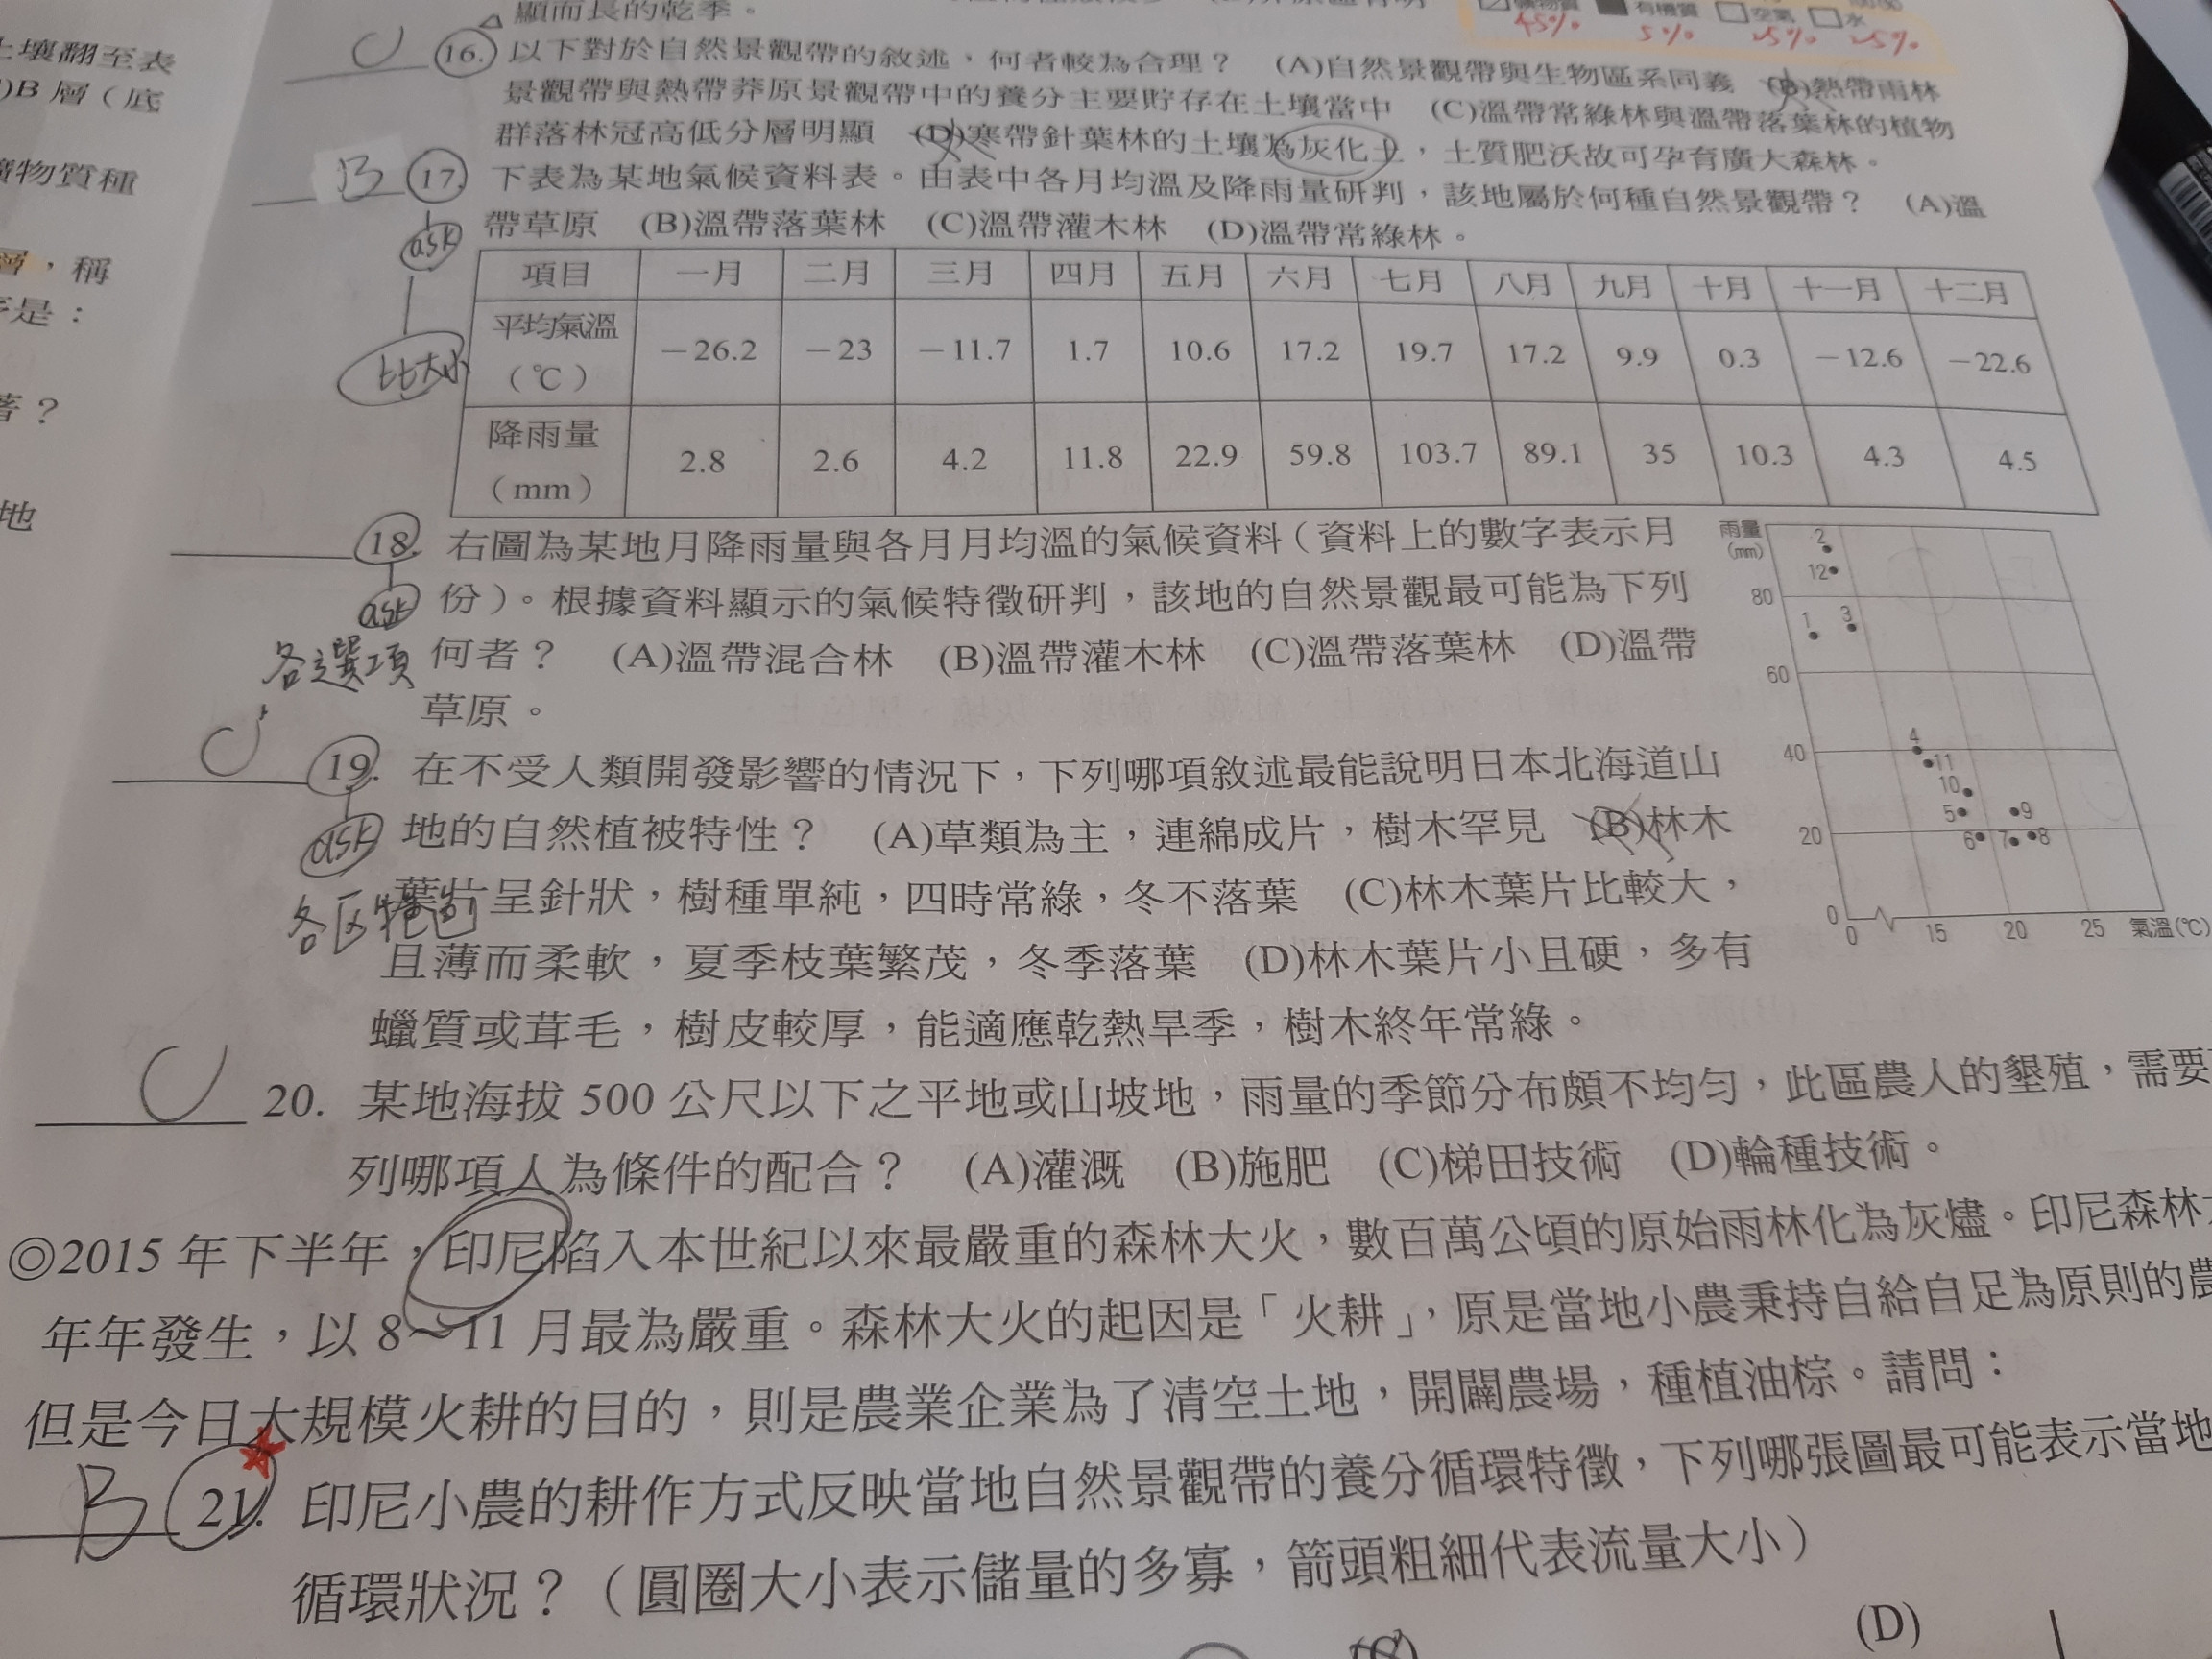 土壤翻至表
)B 層（底
礦物質種
層，稱
序是：
著？
地
顯而長的乾季。
礦物質 有機質 空氣 水
45% 5% 25% 25%
C 16. 以下對於自然景觀帶的敘述，何者較為合理？ (A)自然景觀帶與生物區系同義 (B)熱帶雨林
景觀帶與熱帶莽原景觀帶中的養分主要貯存在土壤當中 (C)溫帶常綠林與溫帶落葉林的植物
群落林冠高低分層明顯 (D)寒帶針葉林的土壤為灰化土，土質肥沃故可孕育廣大森林。
B 17. 下表為某地氣候資料表。由表中各月均溫及降雨量研判，該地屬於何種自然景觀帶？ (A)溫
ask 帶草原 (B)溫帶落葉林 (C)溫帶灌木林 (D)溫帶常綠林。
比大小
項目 一月 二月 三月 四月 五月 六月 七月 八月 九月 十月 十一月 十二月
平均氣溫（℃） －26.2 －23 －11.7 1.7 10.6 17.2 19.7 17.2 9.9 0.3 －12.6 －22.6
降雨量（mm） 2.8 2.6 4.2 11.8 22.9 59.8 103.7 89.1 35 10.3 4.3 4.5
18. 右圖為某地月降雨量與各月月均溫的氣候資料（資料上的數字表示月
ask 份）。根據資料顯示的氣候特徵研判，該地的自然景觀最可能為下列
各選項 何者？ (A)溫帶混合林 (B)溫帶灌木林 (C)溫帶落葉林 (D)溫帶
草原。
雨量(mm)
2
12
80
1 3
60
4
40
11
10
5 9
20
6 7 8
0
0 15 20 25 氣溫(℃)
C 19. 在不受人類開發影響的情況下，下列哪項敘述最能說明日本北海道山
ask 地的自然植被特性？ (A)草類為主，連綿成片，樹木罕見 (B)林木
各区特色
葉片呈針狀，樹種單純，四時常綠，冬不落葉 (C)林木葉片比較大，
且薄而柔軟，夏季枝葉繁茂，冬季落葉 (D)林木葉片小且硬，多有
蠟質或茸毛，樹皮較厚，能適應乾熱旱季，樹木終年常綠。
C 20. 某地海拔 500 公尺以下之平地或山坡地，雨量的季節分布頗不均勻，此區農人的墾殖，需要
列哪項人為條件的配合？ (A)灌溉 (B)施肥 (C)梯田技術 (D)輪種技術。
◎2015 年下半年，印尼陷入本世紀以來最嚴重的森林大火，數百萬公頃的原始雨林化為灰燼。印尼森林
年年發生，以 8～11 月最為嚴重。森林大火的起因是「火耕」，原是當地小農秉持自給自足為原則的農
但是今日大規模火耕的目的，則是農業企業為了清空土地，開闢農場，種植油棕。請問：
B 21. 印尼小農的耕作方式反映當地自然景觀帶的養分循環特徵，下列哪張圖最可能表示當地
循環狀況？（圓圈大小表示儲量的多寡，箭頭粗細代表流量大小）
(C) (D)